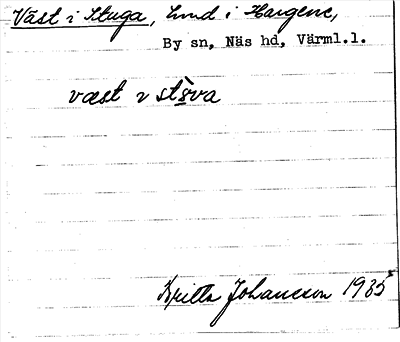 Väst i Stuga, hmd i Hargene,
By sn, Näs hd, Värml.l.
væst ɩ stɷ̀va
Britta Johansson 1935